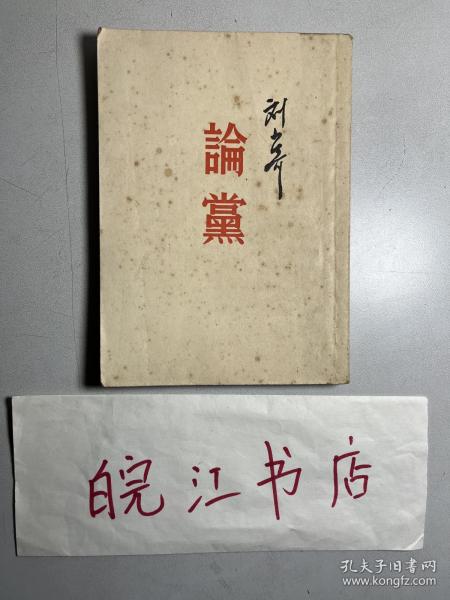 論黨
刘少奇
皖江书店
孔夫子旧书网
www.kongfz.com